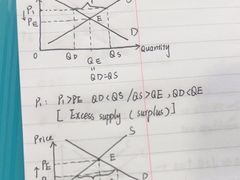 P₁
PE
E
D
QD QE QS Quantity
=
QD=QS
P₁: P₁>PE QD<QS /QS>QE, QD<QE
[ Excess supply ( surplus) ]
Price
S
E
PE
D